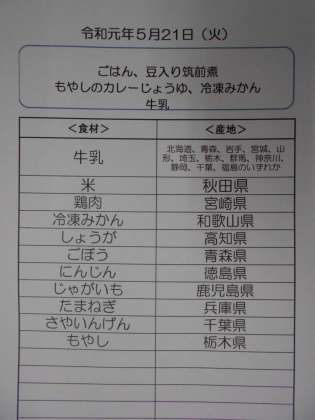 令和元年5月21日(火)
ごはん、豆入り筑前煮
もやしのカレーじょうゆ、冷凍みかん
牛乳
<食材> <産地>
牛乳 北海道、青森、岩手、宮城、山
形、埼玉、栃木、群馬、神奈川、
静岡、千葉、福島のいずれか
米 秋田県
鶏肉 宮崎県
冷凍みかん 和歌山県
しょうが 高知県
ごぼう 青森県
にんじん 徳島県
じゃがいも 鹿児島県
たまねぎ 兵庫県
さやいんげん 千葉県
もやし 栃木県